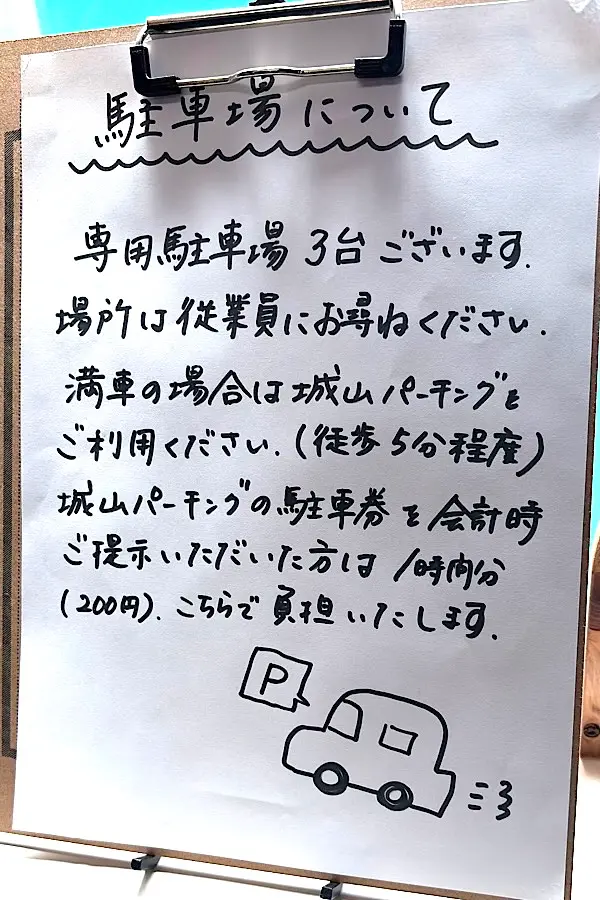 駐車場について
専用駐車場 3台 ございます.
場所は従業員にお尋ねください.
満車の場合は城山パーキングを
ご利用ください.(徒歩5分程度)
城山パーキングの駐車券を会計時
ご提示いただいた方は1時間分
(200円).こちらで負担いたします.
P